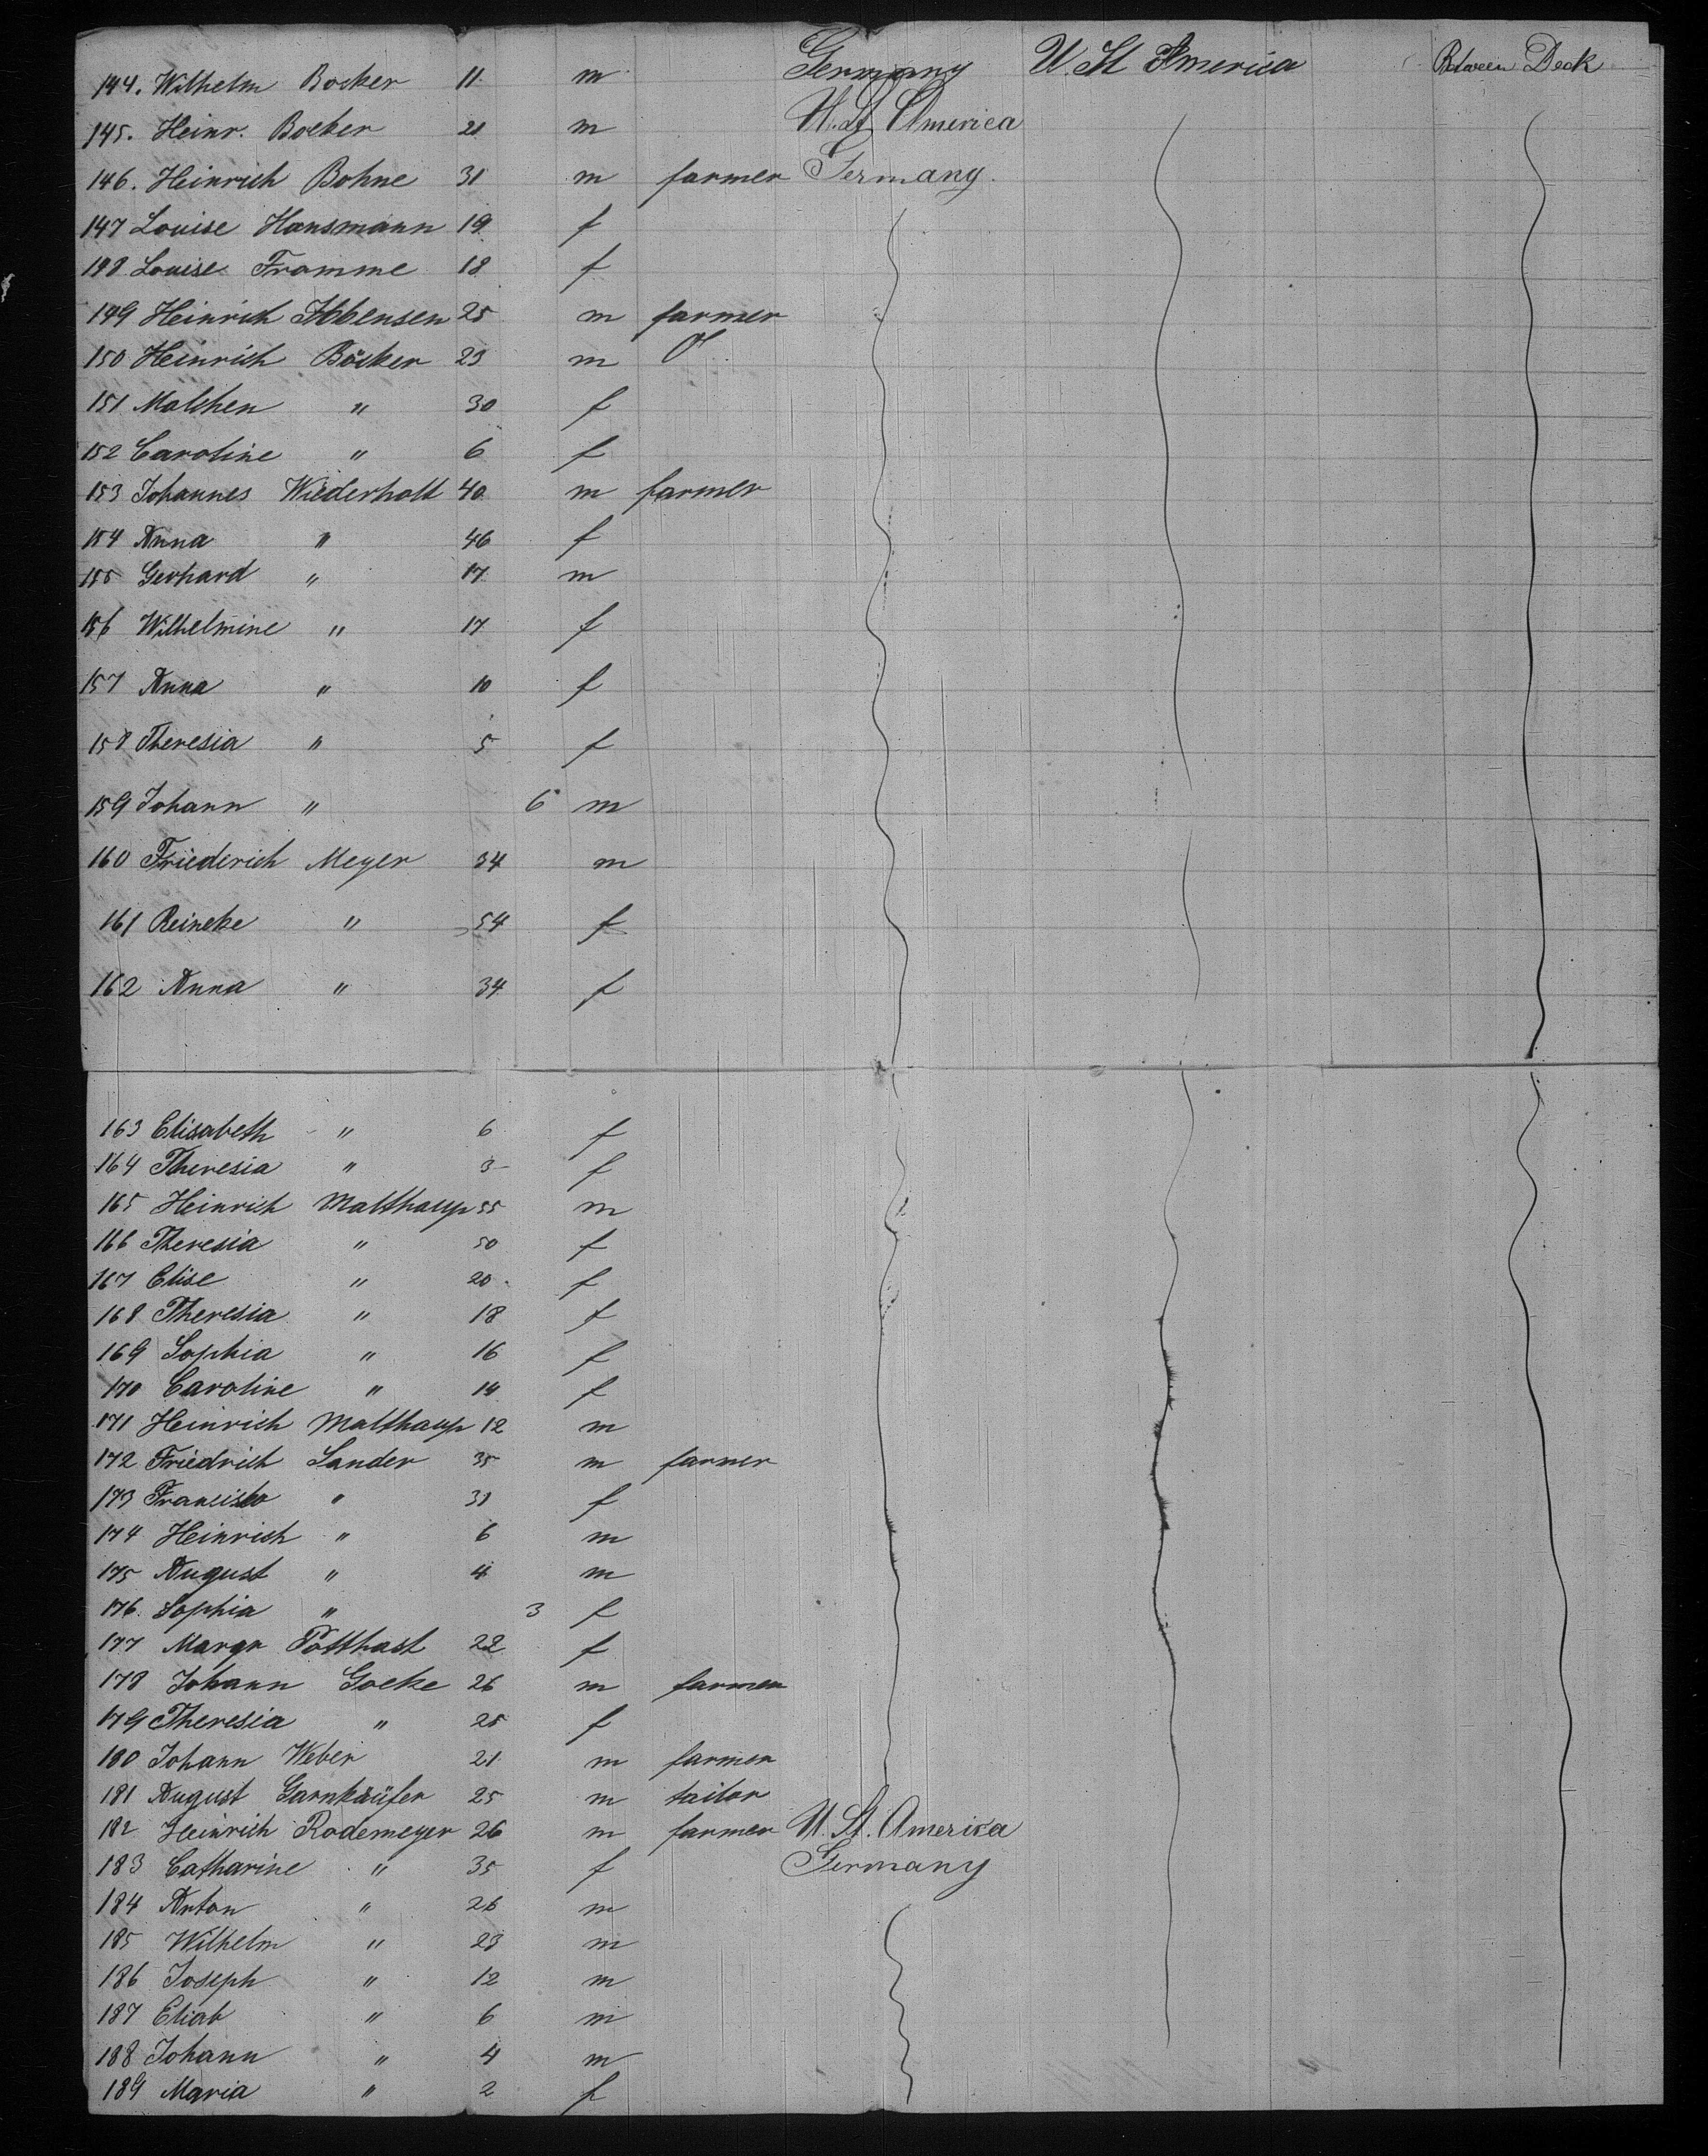 144. Wilhelm Bocker 11 m Germany U. St America Between Deck
145. Heinr. Bocker 21 m U. St America
146. Heinrich Bohne 31 m farmer Germany.
147 Louise Hansmann 19 f
148 Louise Framme 18 f
149 Heinrich Ibbensen 25 m farmer
150 Heinrich Böcker 23 m
151 Malchen " 30 f
152 Caroline " 6 f
153 Johannes Wiederholt 40 m farmer
154 Anna " 46 f
155 Gerhard " 17 m
156 Wilhelmine " 17 f
157 Anna " 10 f
158 Theresia " 5 f
159 Johann " 6 m
160 Friederich Meyer 34 m
161 Reineke " 54 f
162 Anna " 34 f
163 Elisabeth " 6 f
164 Theresia " 3 f
165 Heinrich Malthaup 55 m
166 Theresia " 50 f
167 Elise " 20 f
168 Theresia " 18 f
169 Sophia " 16 f
170 Caroline " 14 f
171 Heinrich Malthaup 12 m
172 Friedrich Sander 35 m farmer
173 Francisko " 31 f
174 Heinrich " 6 m
175 August " 4 m
176. Sophia " 3 f
177 Margr Potthast 22 f
178 Johann Goeke 26 m farmer
179 Theresia " 25 f
180 Johann Weber 21 m farmer
181 August Garnkäufer 25 m tailor
182 Heinrich Rodemeyer 26 m farmer U. St. America
183 Catharine " 35 f Germany
184 Anton " 26 m
185 Wilhelm " 23 m
186 Joseph " 12 m
187 Eliab " 6 m
188 Johann " 4 m
189 Maria " 2 f